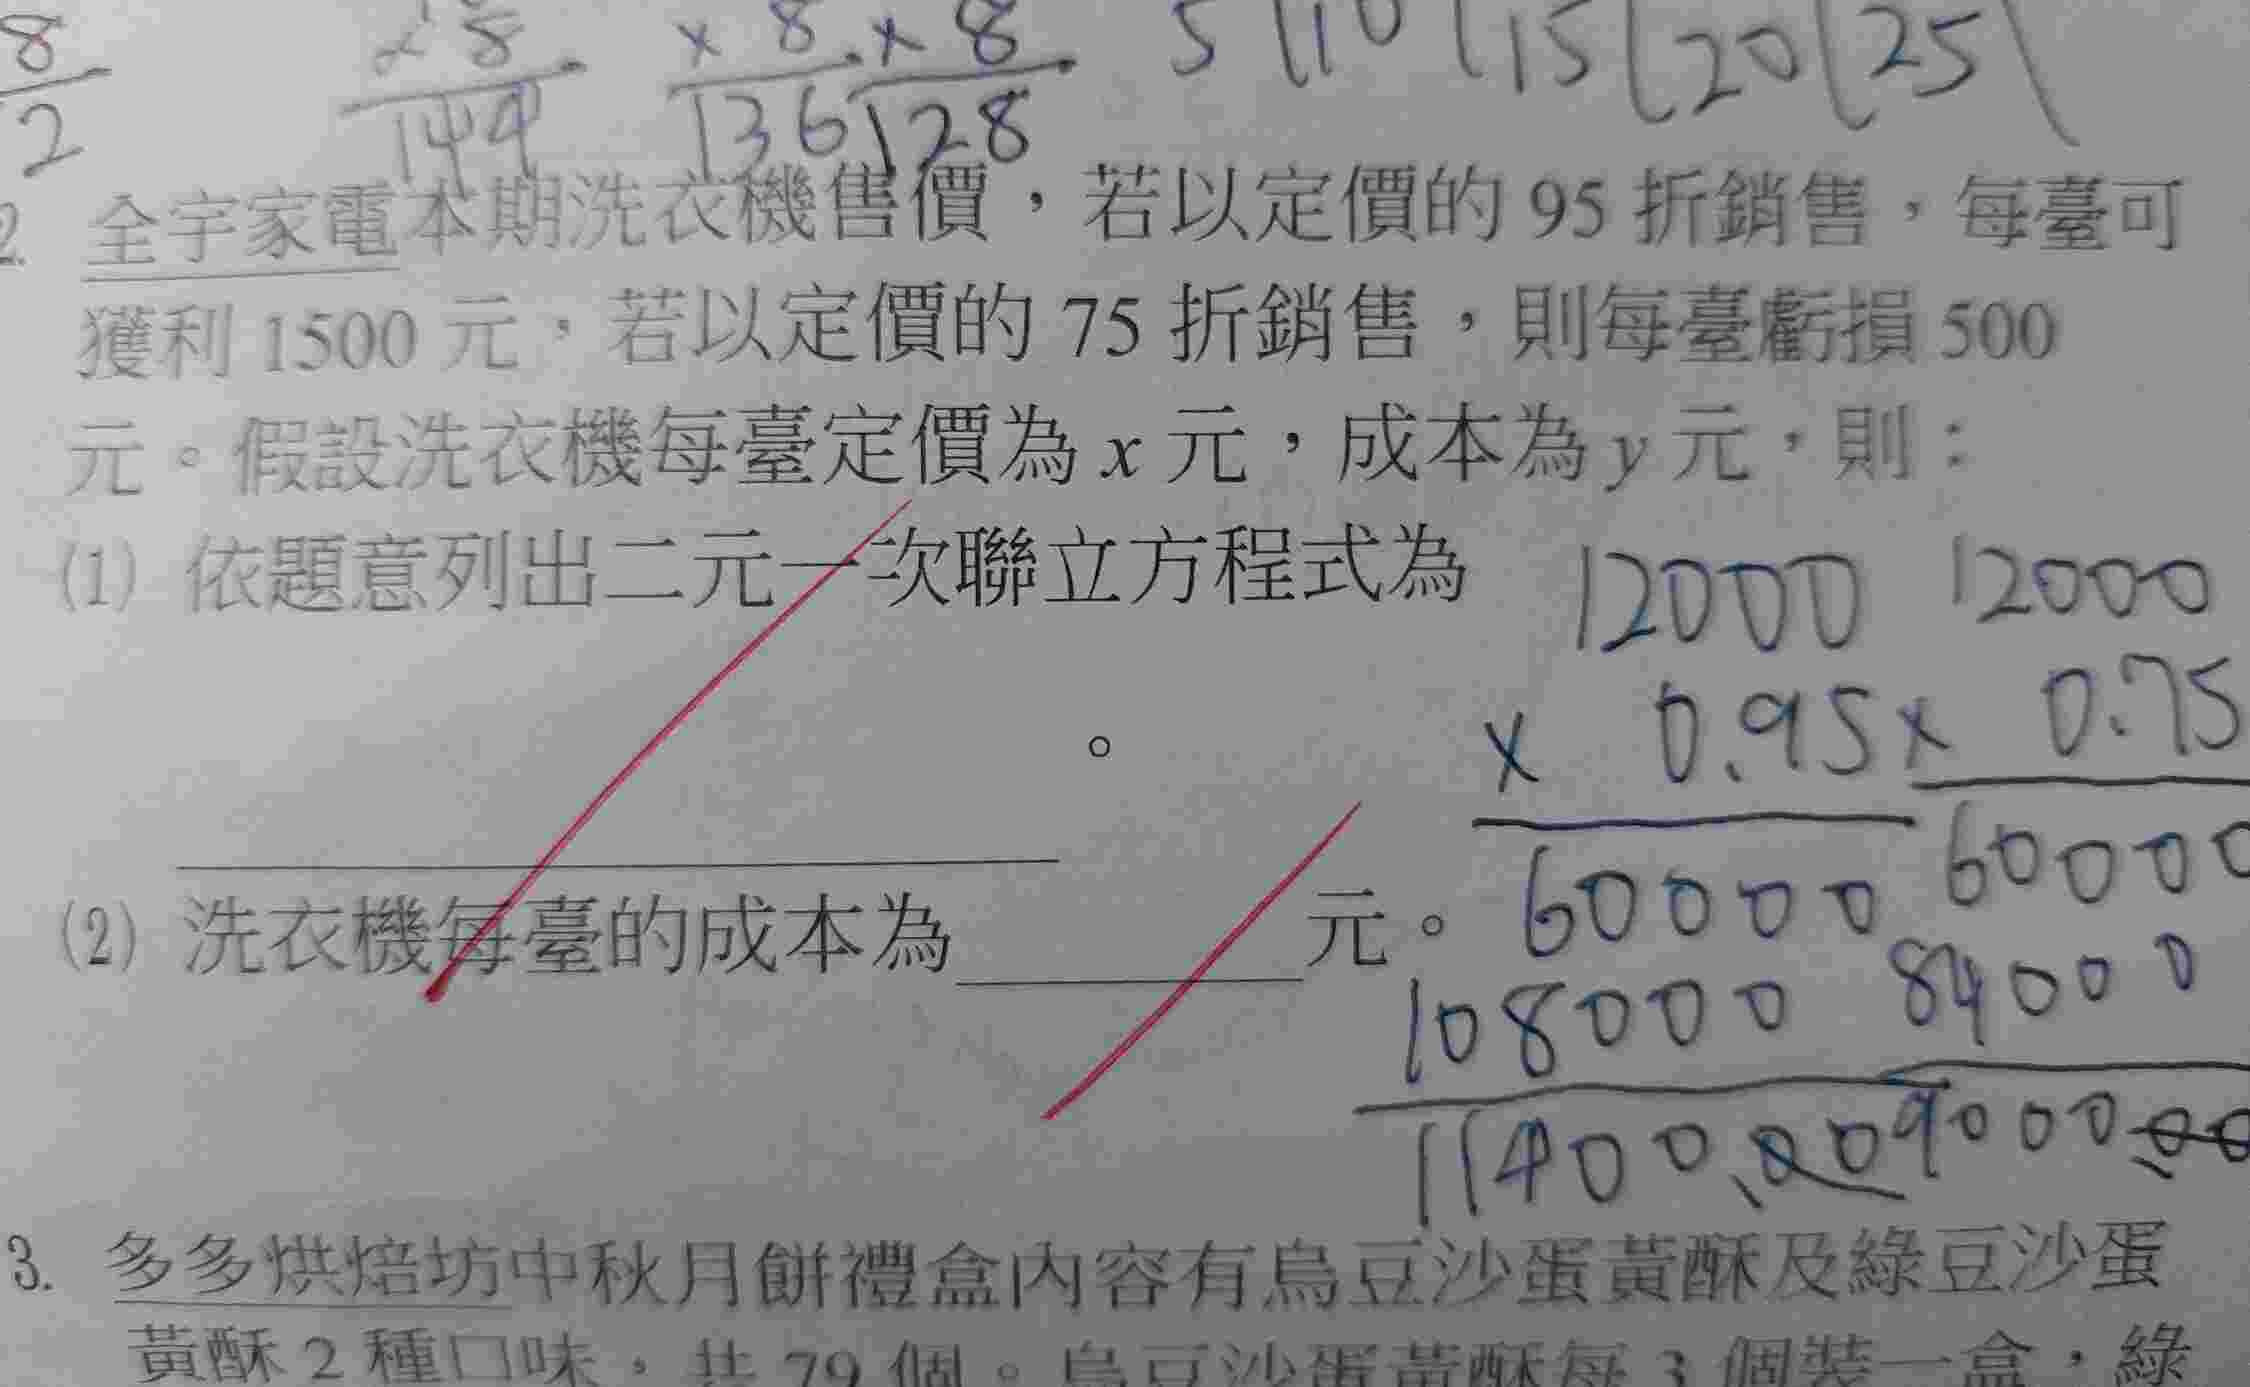 8
2
28
144
× 8
136
× 8
128
5 10 15 20 25
2. 全宇家電本期洗衣機售價，若以定價的 95 折銷售，每臺可
獲利 1500 元，若以定價的 75 折銷售，則每臺虧損 500
元。假設洗衣機每臺定價為 x 元，成本為 y 元，則：
(1) 依題意列出二元一次聯立方程式為
。
(2) 洗衣機每臺的成本為 元。
12000
× 0.95
60000
108000
11400.00
12000
× 0.75
60000
84000
9000.00
3. 多多烘焙坊中秋月餅禮盒內容有烏豆沙蛋黃酥及綠豆沙蛋
黃酥 2 種口味，共 79 個。烏豆沙蛋黃酥每 3 個裝一盒，綠